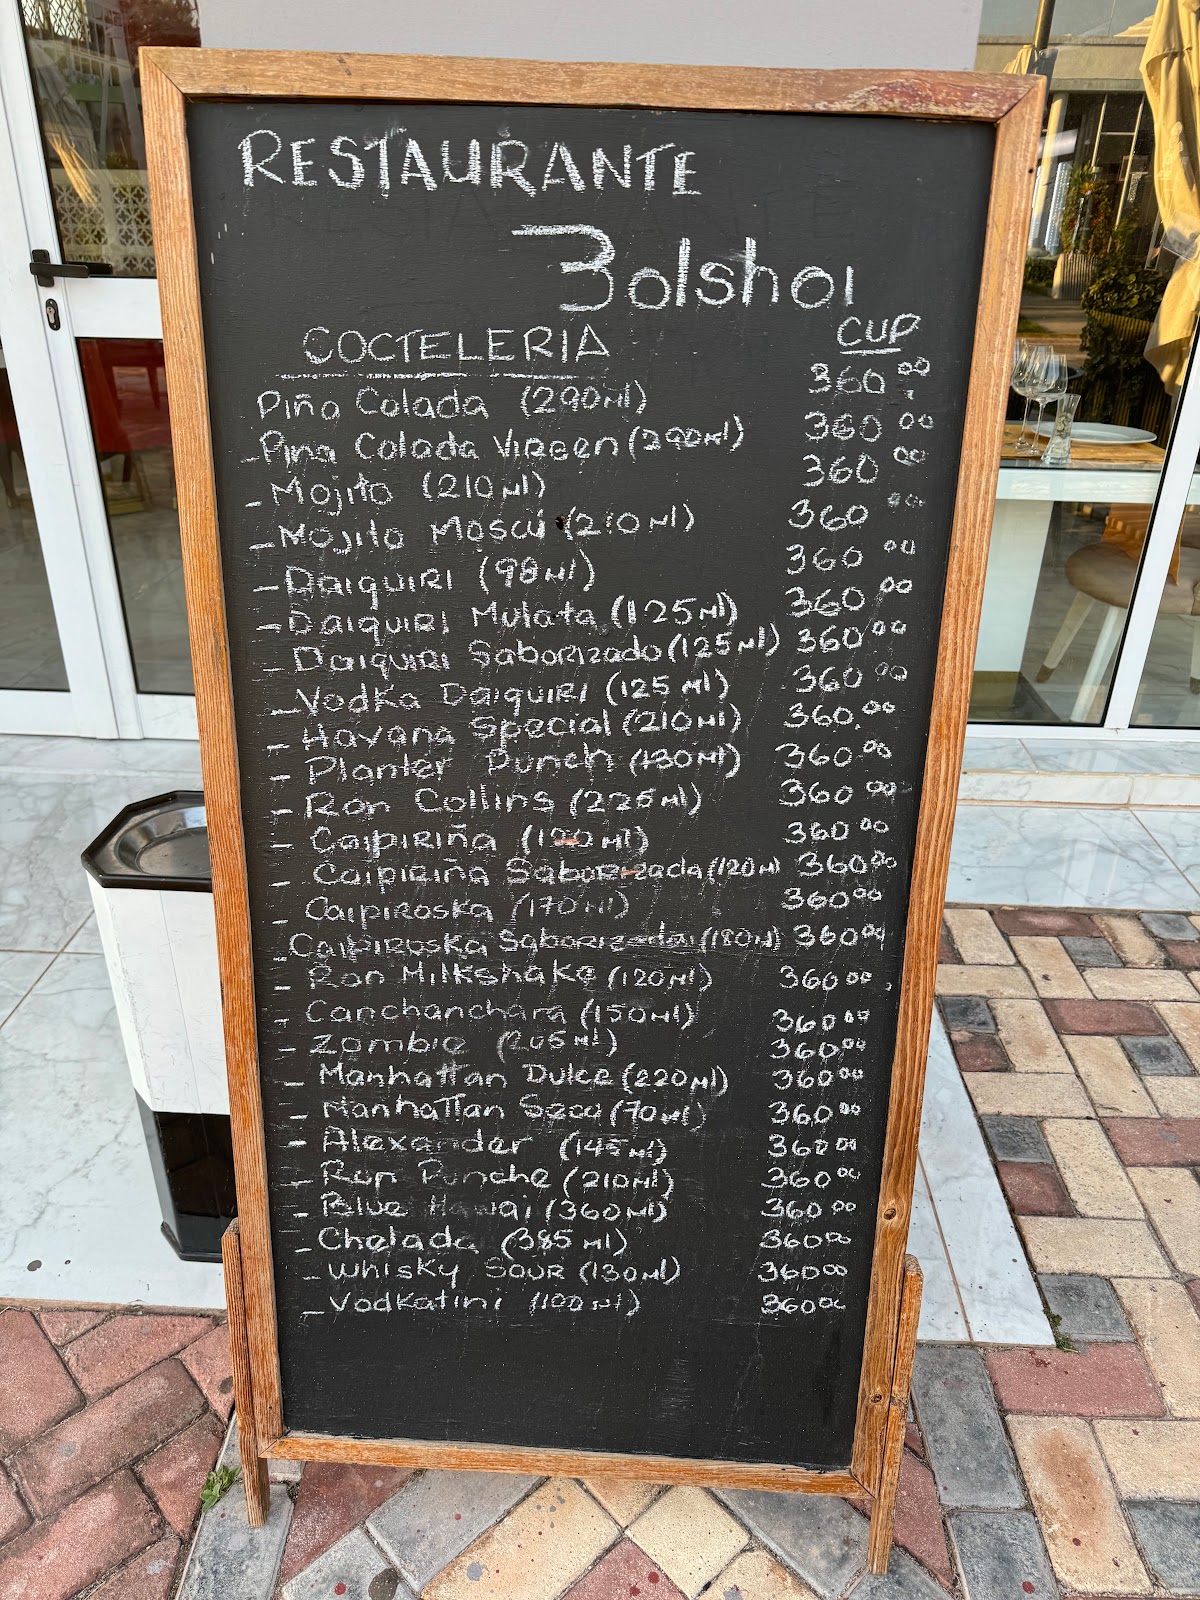 RESTAURANTE
Bolshoi
COCTELERIA CUP
Piña Colada (290ml) 360.00
- Pina Colada Virgen (290ml) 360 00
- Mojito (210ml) 360 00
- Mojito Moscú (210ml) 360 00
- Daiquiri (98ml) 360 00
- Daiquiri Mulata (125ml) 360 00
- Daiquiri Saborizado (125ml) 360 00
- Vodka Daiquiri (125ml) 360 00
- Havana Special (210ml) 360.00
- Planter Punch (130ml) 360 00
- Ron Collins (225ml) 360 00
- Caipiriña (120ml) 360 00
- Caipiriña Saborizada (120ml) 360 00
- Caipiroska (170ml) 360 00
- Caipiroska Saborizada (180ml) 360 00
- Ron Milkshake (120ml) 360 00
- Canchanchara (150ml) 360 00
- Zombie (205ml) 360 00
- Manhattan Dulce (220ml) 360 00
- Manhattan Seco (70ml) 360 00
- Alexander (145ml) 360 00
- Ron Punche (210ml) 360 00
- Blue Hawai (360ml) 360 00
- Chelada (385ml) 360 00
- Whisky Sour (130ml) 360 00
- Vodkatini (100ml) 360 00